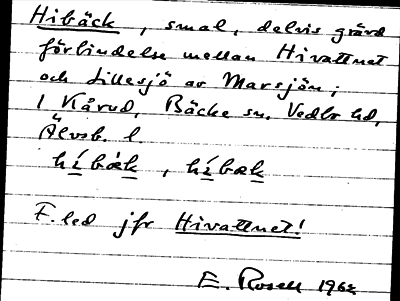 Hibäck, smal, delvis grävd
förbindelse mellan Hivattnet
och Lillesjö av Marsjön;
i Kårud, Bäcke sn. Vedbo hd,
Älvsb. l.
híbæk, híbæk
F.led jfr Hivattnet!
E. Rosell